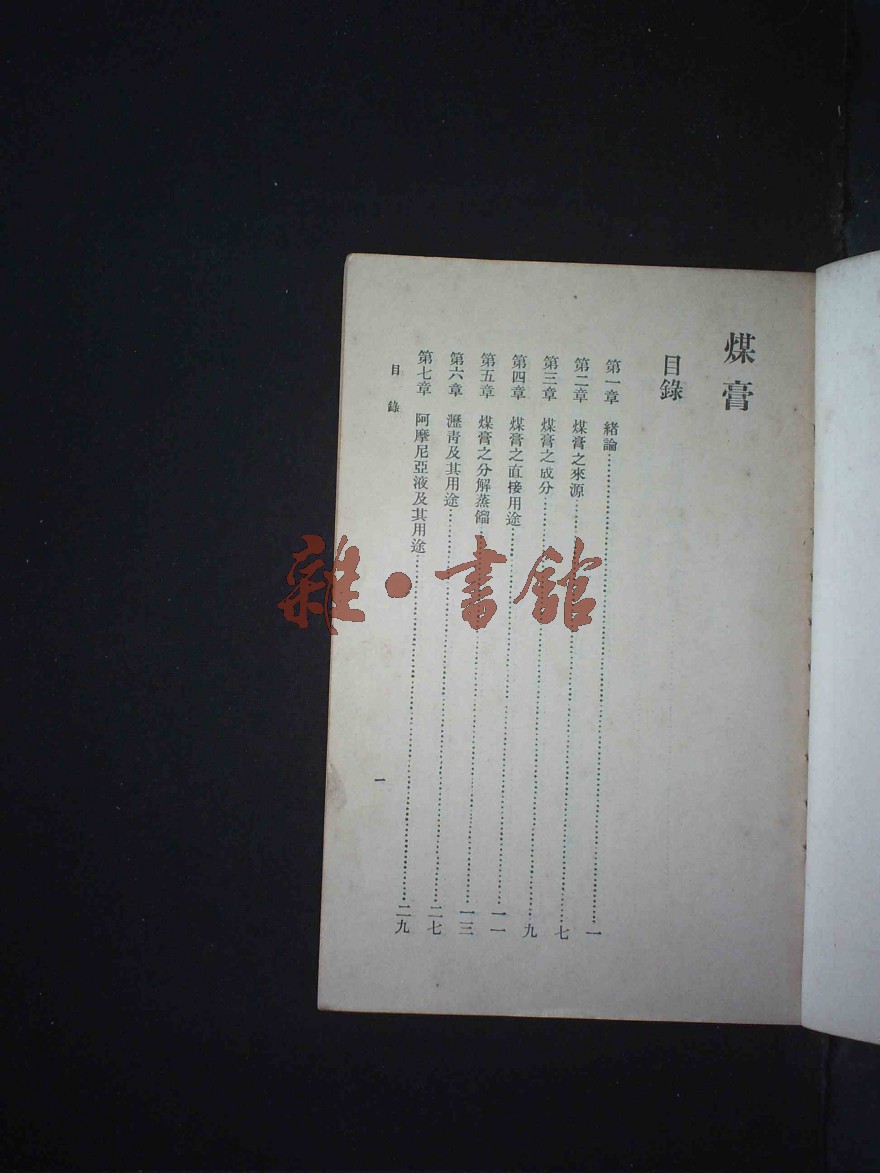 煤膏
目錄
第一章 緒論……一
第二章 煤膏之來源……七
第三章 煤膏之成分……九
第四章 煤膏之直接用途……一一
第五章 煤膏之分解蒸餾……一三
第六章 瀝青及其用途……二七
第七章 阿摩尼亞液及其用途……二九
目錄
一
雜·書館